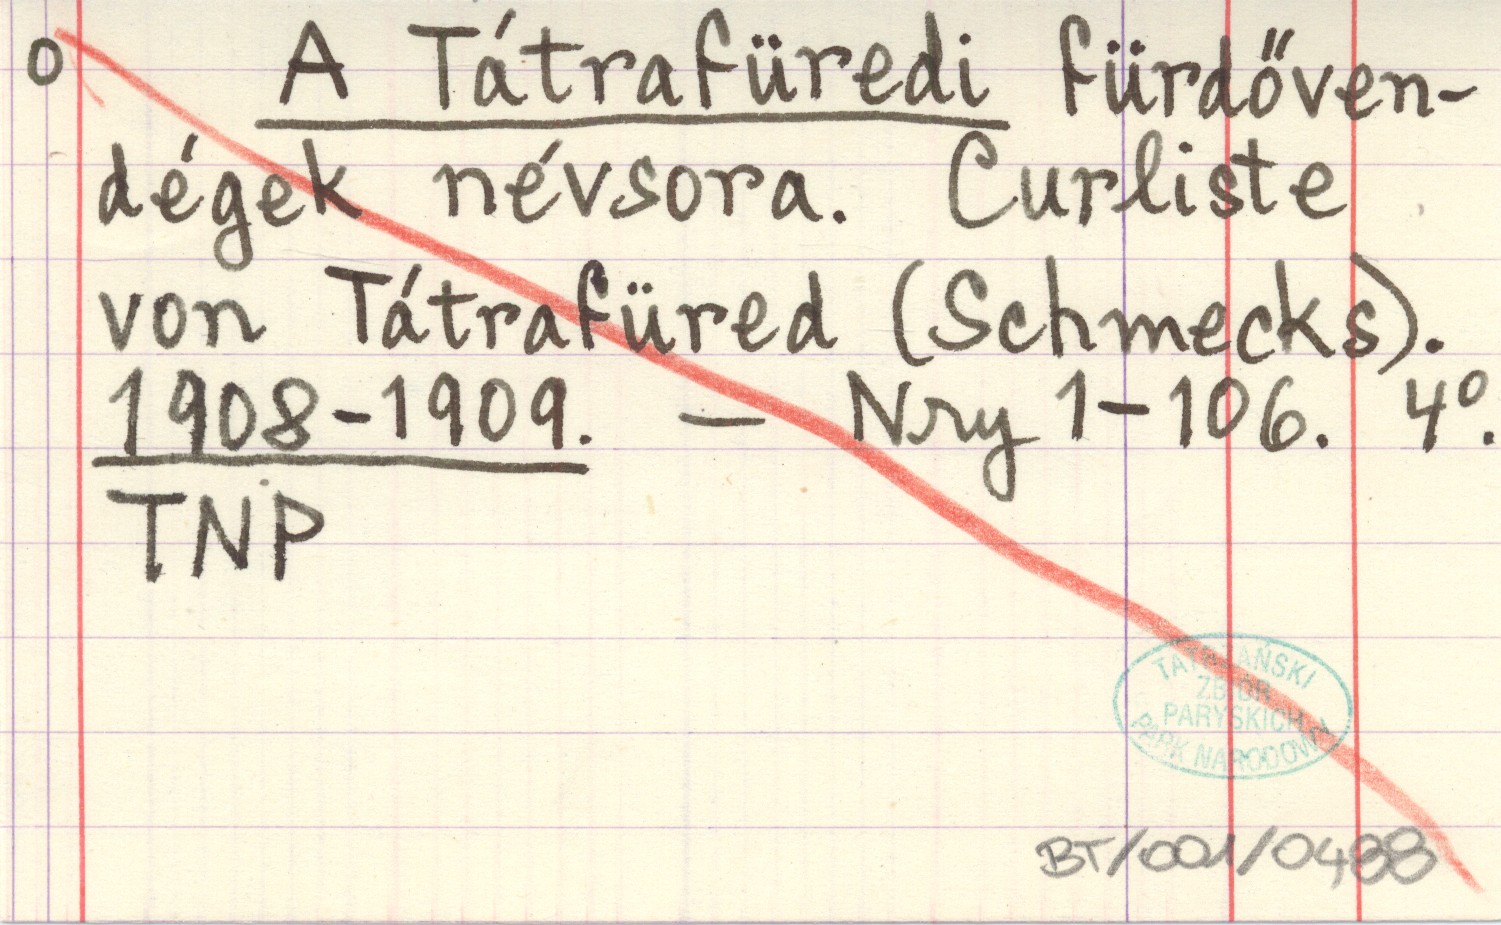 o A Tátrafüredi fürdőven-
dégek névsora. Curliste
von Tátrafüred (Schmecks).
1908-1909. — Nry 1-106. 4º.
TNP
TATRZAŃSKI
ZBIÓR
PARYSKICH
PARK NARODOWY
BT/001/0488